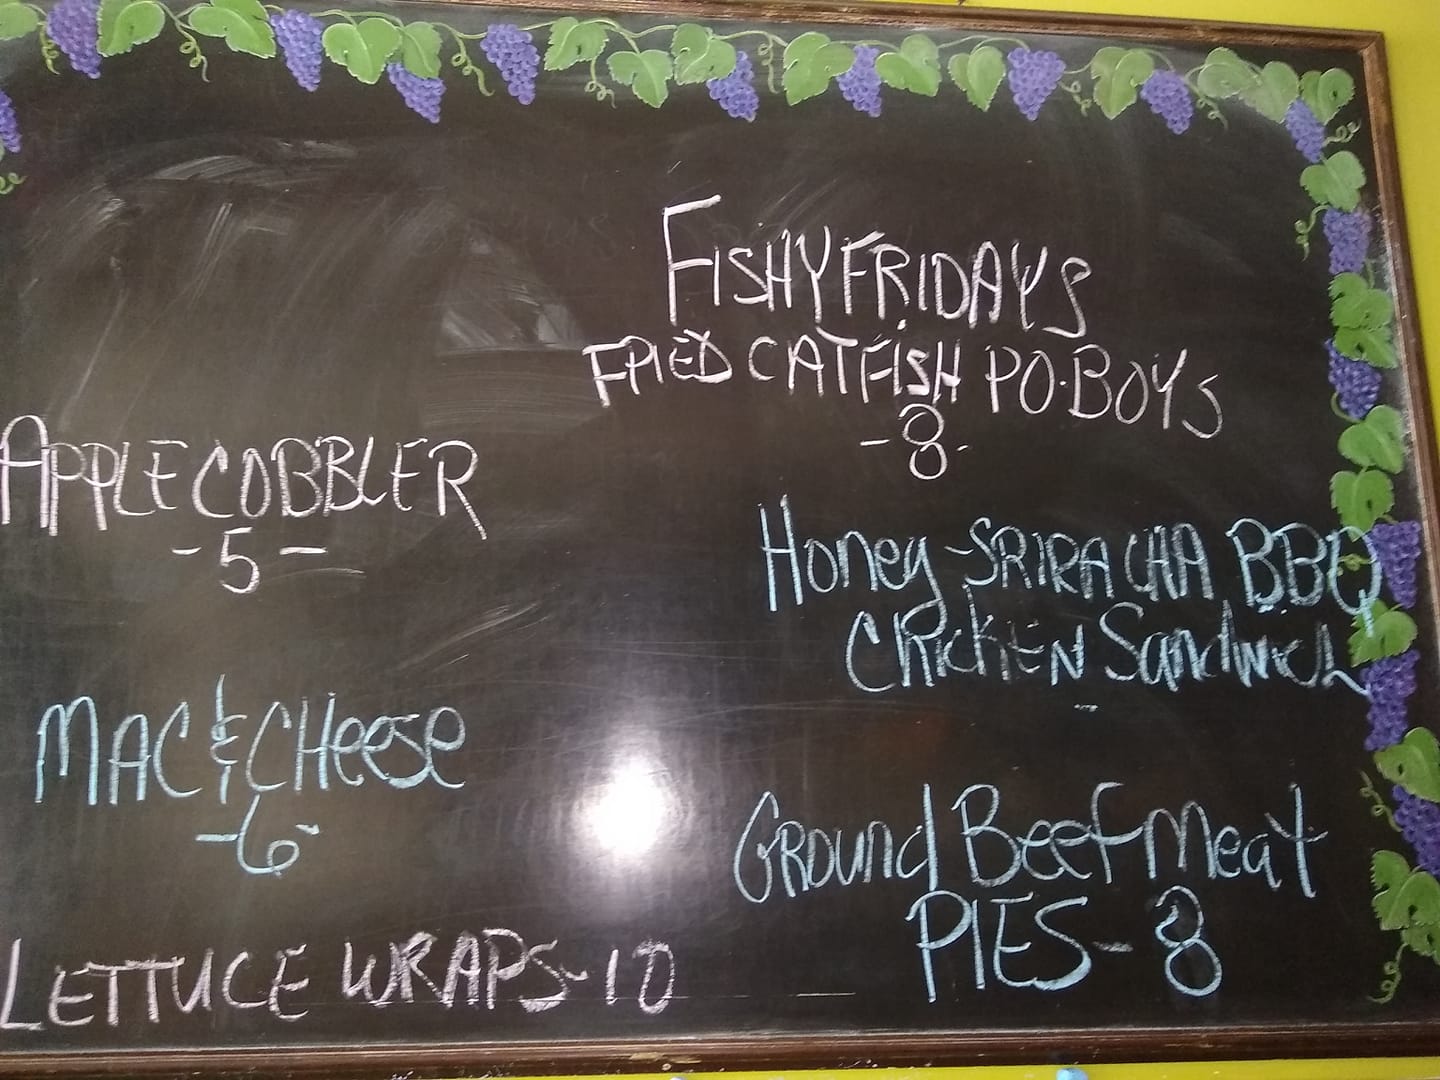 FISHY FRIDAYS
FRIED CATFISH PO-BOYS
-8-
APPLE COBBLER
-5-
HONEY-SRIRACHA BBQ
CHICKEN SANDWICH
MAC & CHEESE
-6-
GROUND BEEF MEAT
PIES-8
LETTUCE WRAPS-10